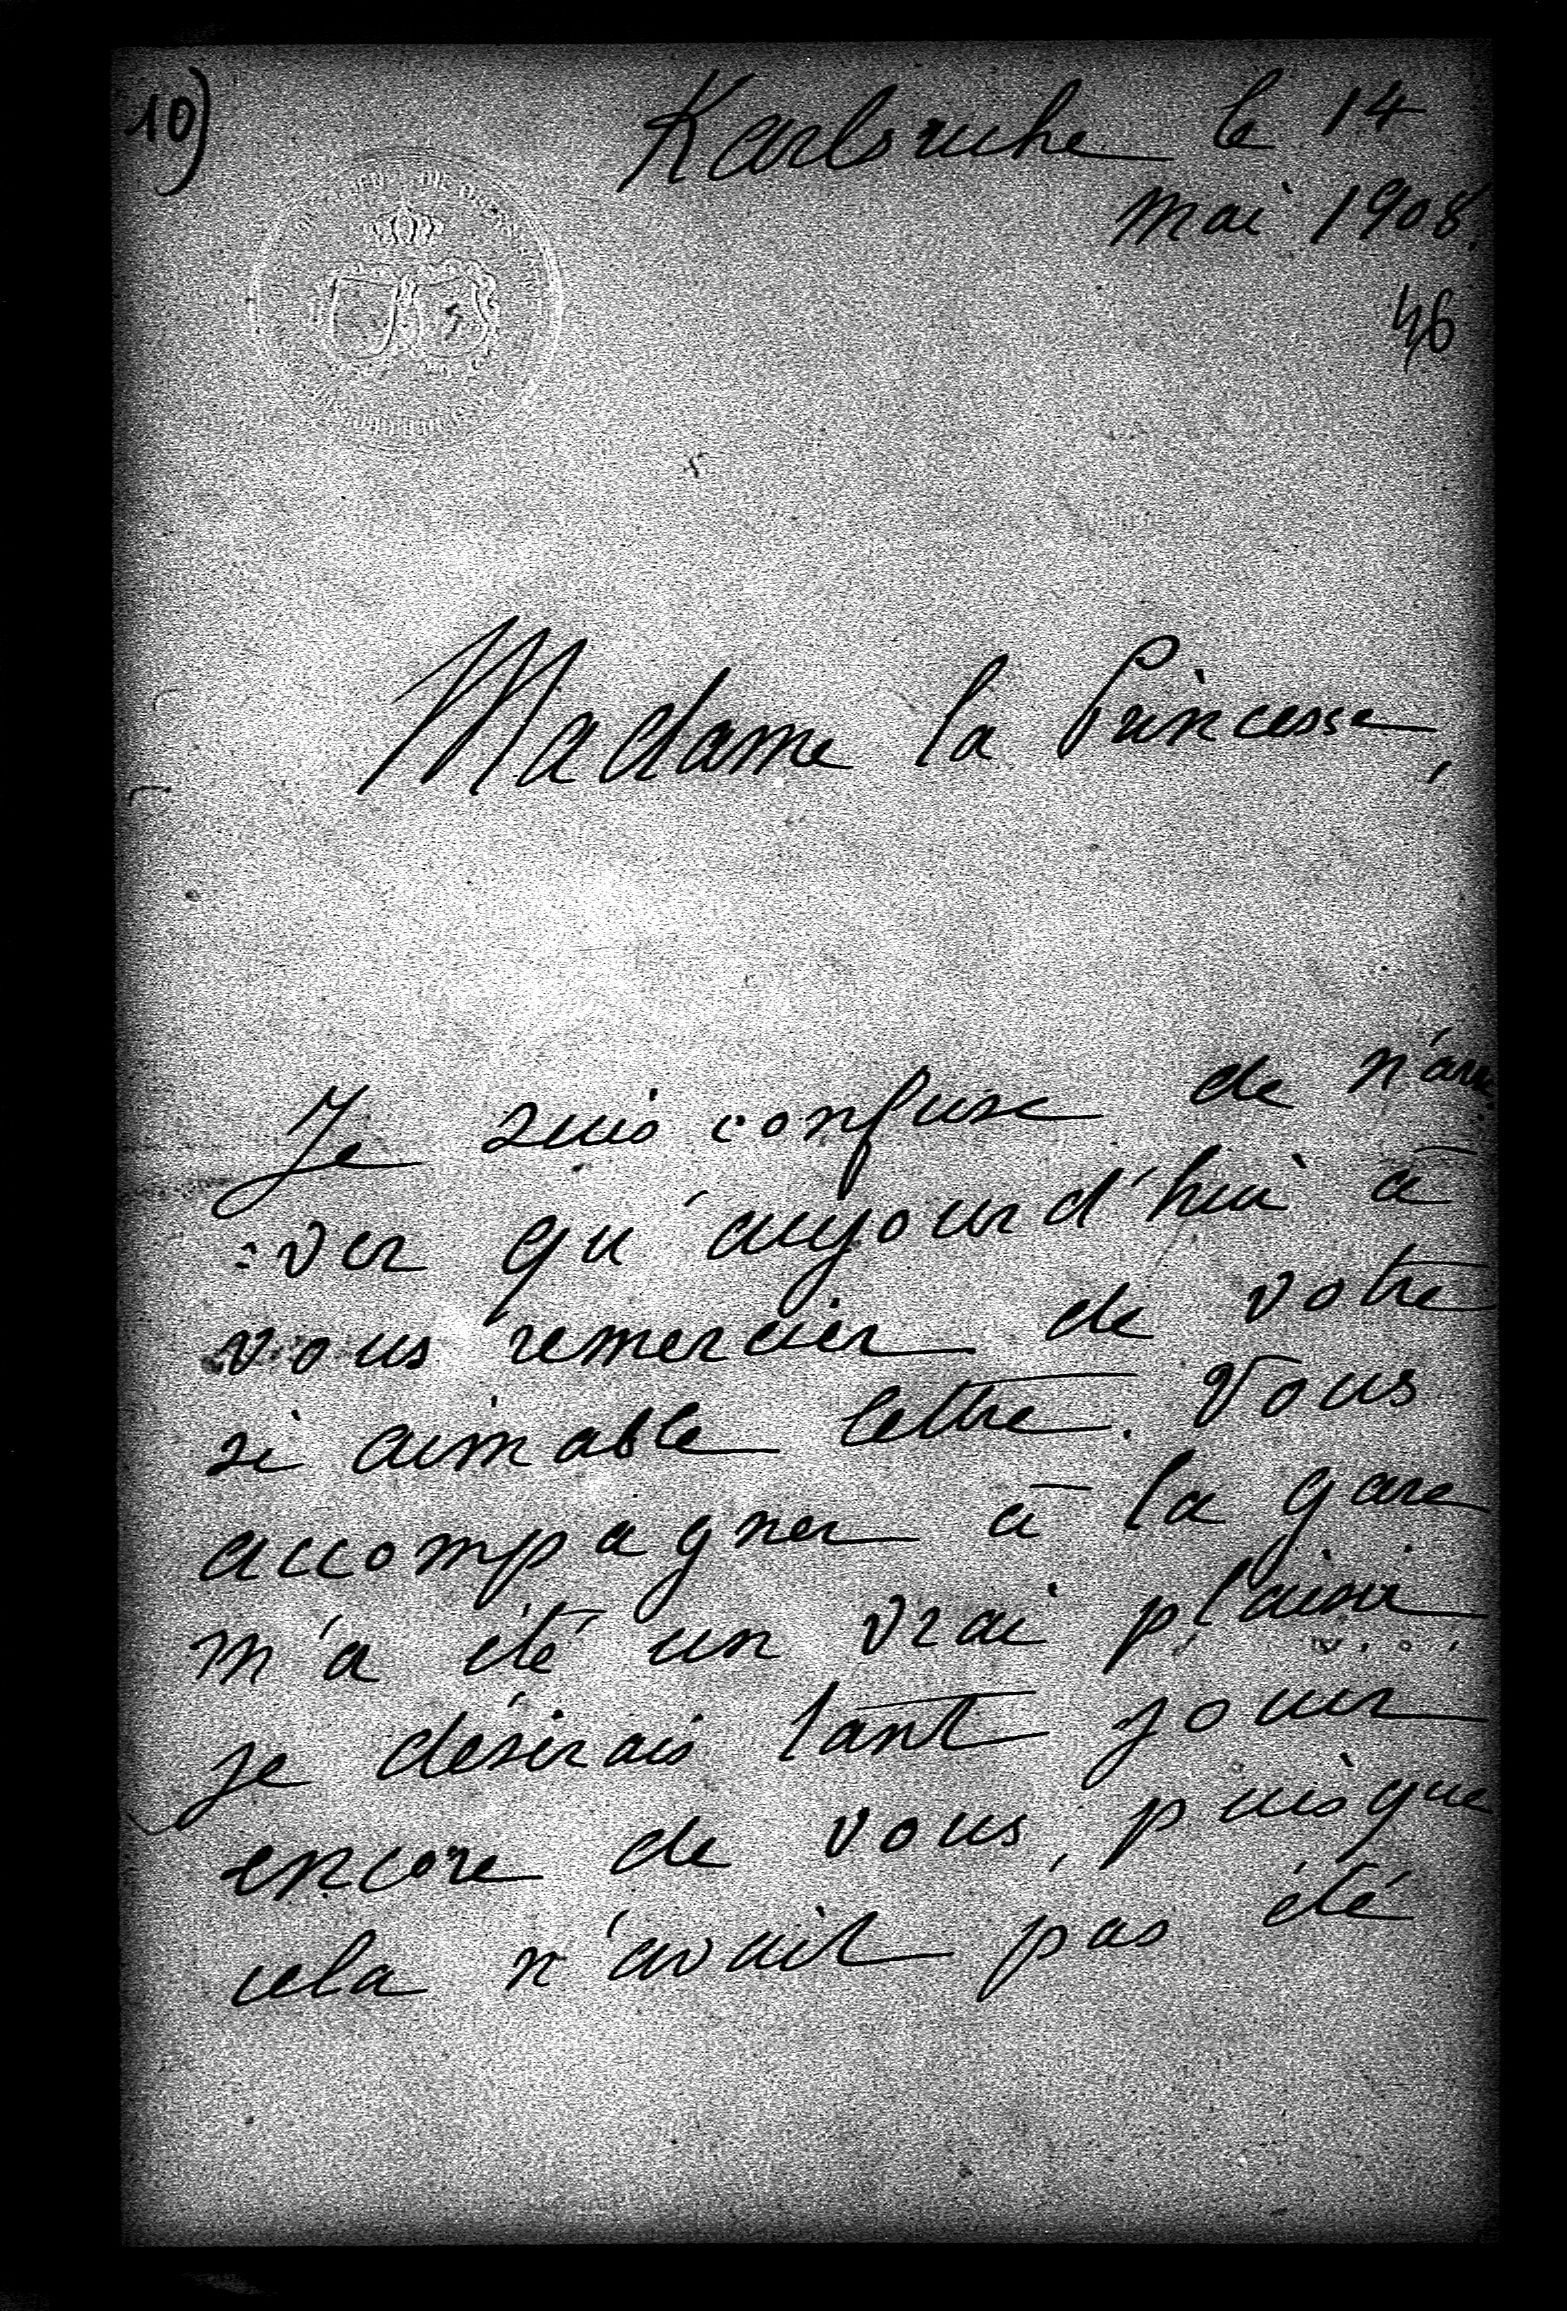 10)
Karlsruhe le 14
mai 1908.
46
Madame la Princesse,
Je suis confuse de n'arri
=ver qu'aujourd'hui à
vous remercier de votre
si aimable lettre. Vous
accompagner à la gare
m'a été un vrai plaisir
je désirais tant jouir
encore de vous, puisque
cela n'avait pas été